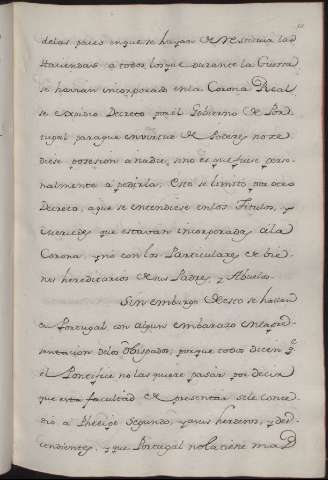 delas paces enque se hayan de restituir las
Haciendas a todos los que durante la Guerra
se havian incorporado en la Corona Real
se expidio Decreto por el Gobierno de Por
tugal para que en virtud de Poderes no se
diese posesion a nadie, sino es que fuese perso-
nalmente a pedirla. Esto se limitó por otro
Decreto, a que se entendiese en los Titulos, y
mercedes que estavan incorporadas a la
Corona, y no con los Particulares de bie-
nes hereditarios de sus Padres, y Abuelos.
Sin embargo de esto se hallan
en Portugal con algun embarazo en la pre-
sentacion de los Obispados; porque todos dicen q.e
el Pontifice no las quiere pasar por decir
que esta facultad de presentar se le conce
dio a Phelipe Segundo, y a sus herederos, y des-
cendientes, y que Portugal no la tiene mas